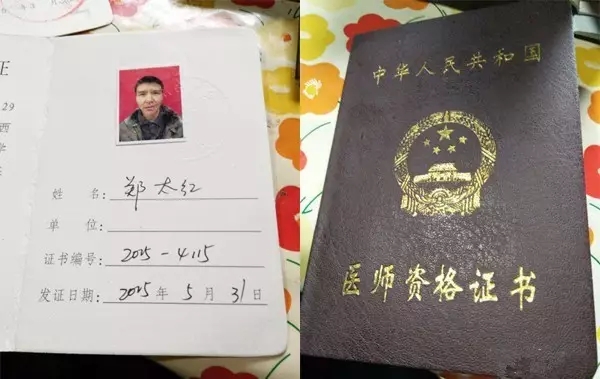 证
29
西
姓 名: 郑太红
单 位:
证书编号: 2015-4115
发证日期: 2015年5月31日
中华人民共和国
医师资格证书